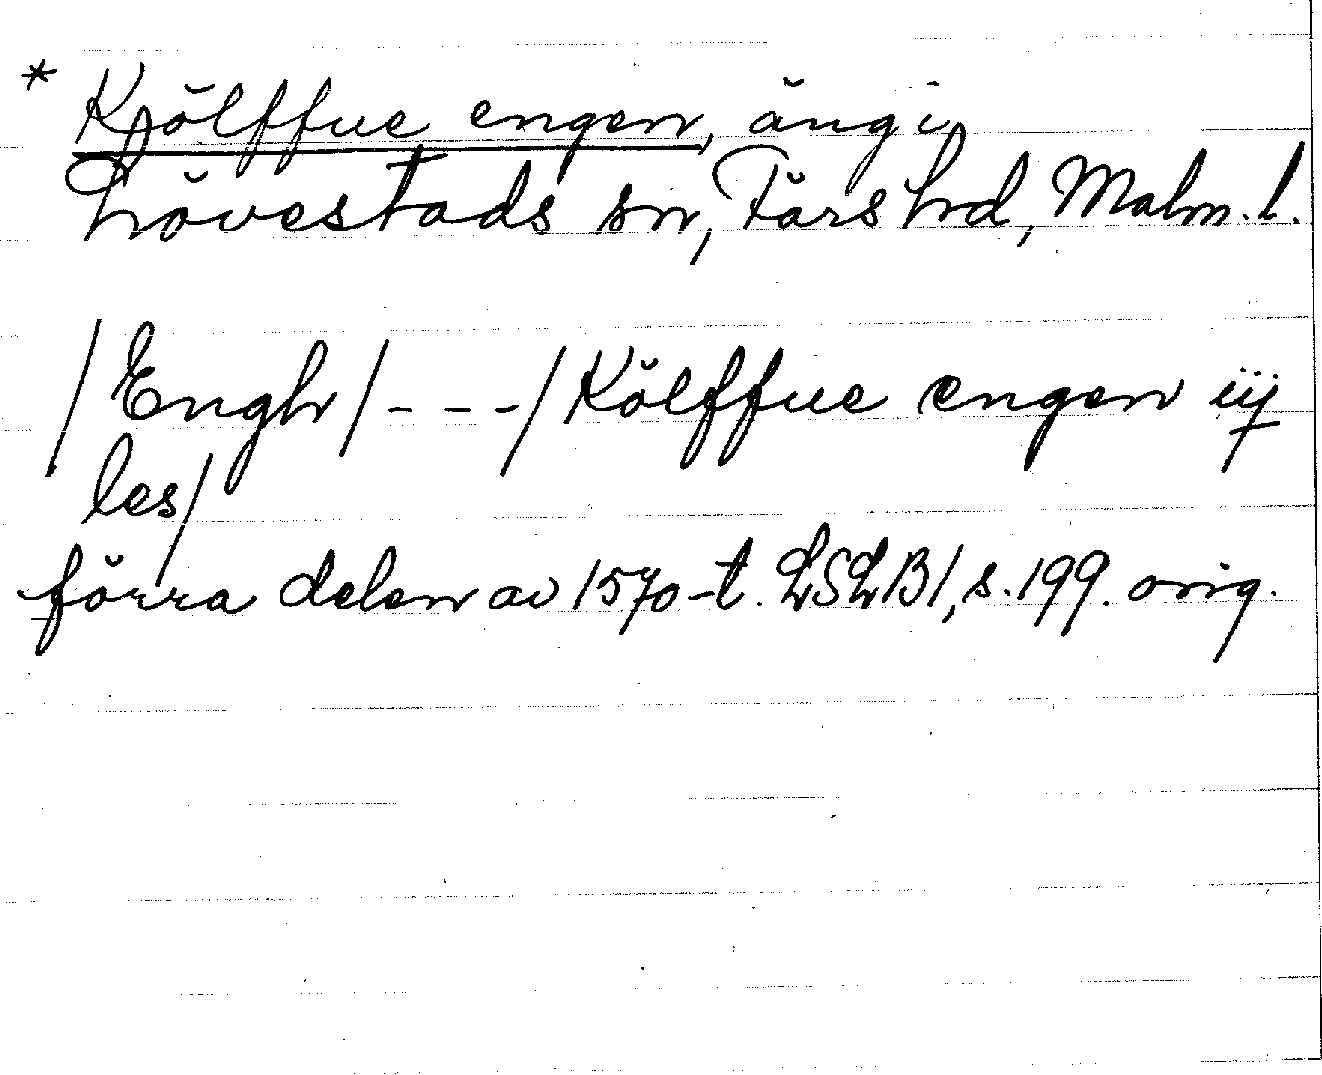 * Kölffue engen, äng i
Lövestads sn, Färs hd, Malm. l.
/Engh/---/Kölffue engen iij
les/
förra delen av 1570-t. LSLB1, s. 199. orig.